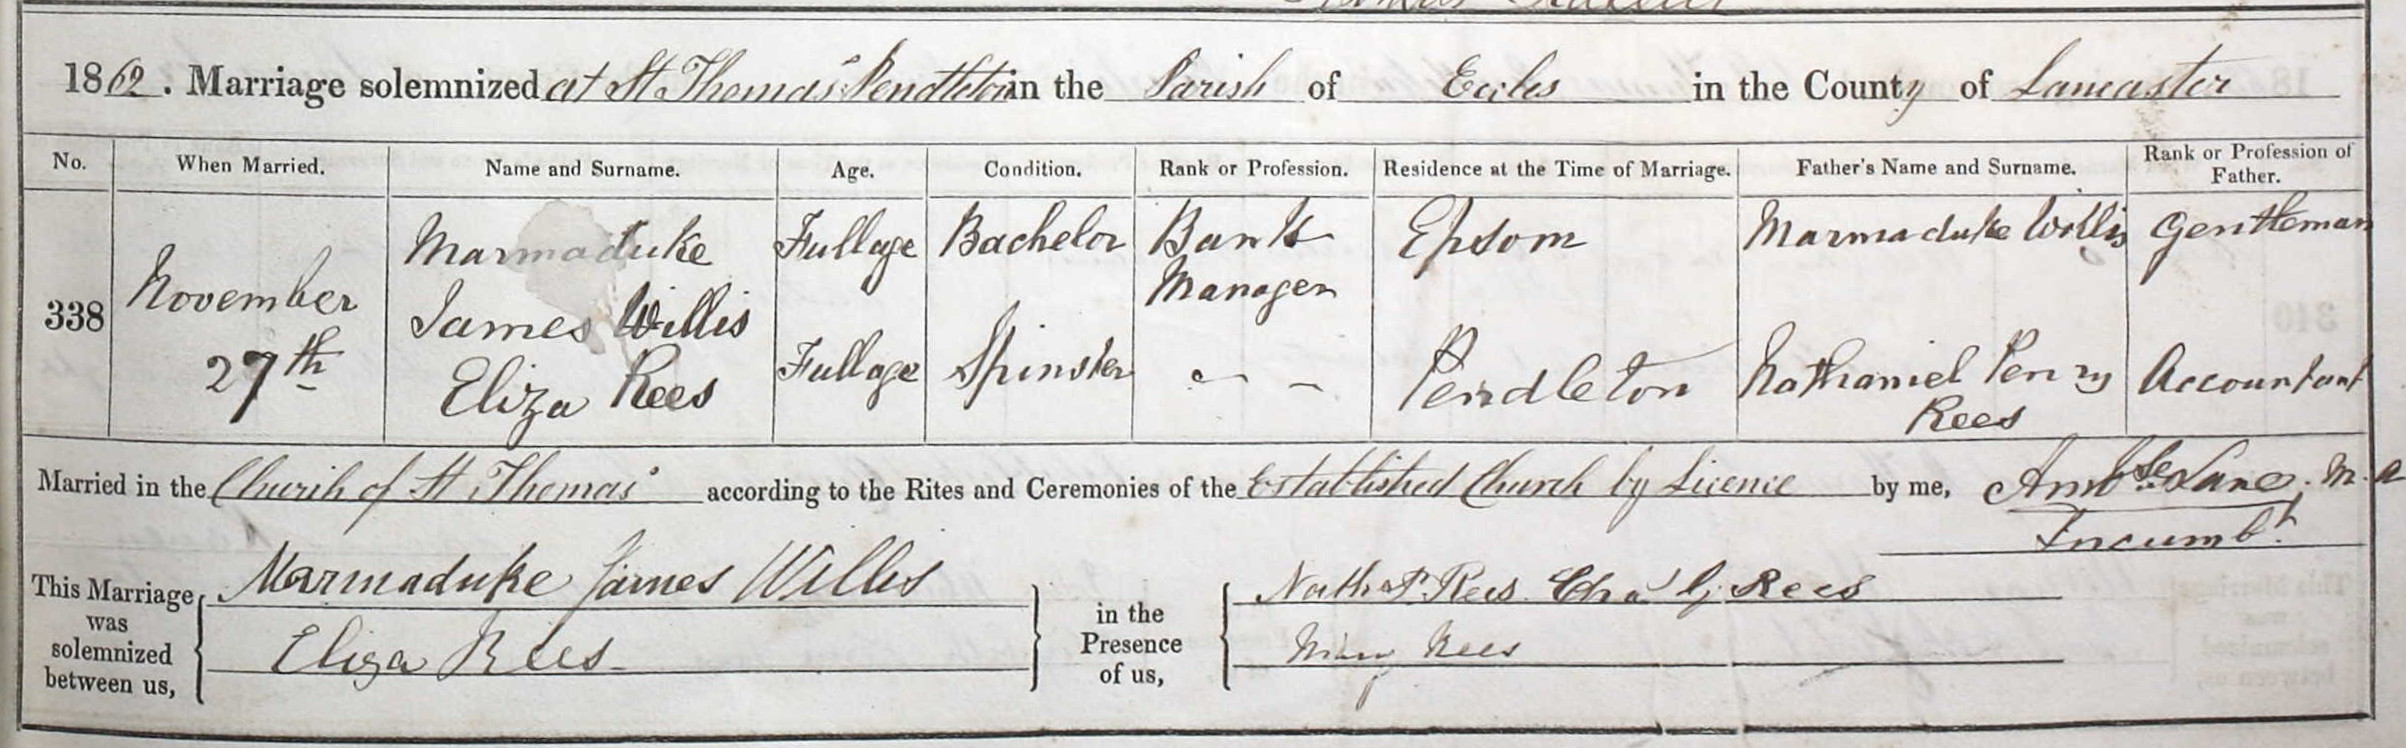 1862. Marriage solemnized at St Thomas' Pendleton in the Parish of Eccles in the County of Lancaster
No. When Married. Name and Surname. Age. Condition. Rank or Profession. Residence at the Time of Marriage. Father's Name and Surname. Rank or Profession of Father.
338 November 27th
Marmaduke James Willis Full age Bachelor Bank Manager Epsom Marmaduke Willis Gentleman
Eliza Rees Full age Spinster - - Pendleton Nathaniel Penry Rees Accountant
Married in the Church of St Thomas' according to the Rites and Ceremonies of the Established Church by Licence by me, Ambse Lane, M.A
Incumbt.
This Marriage was solemnized between us,
Marmaduke James Willis
Eliza Rees
in the Presence of us,
Nath P. Rees. Chas G. Rees
Rees